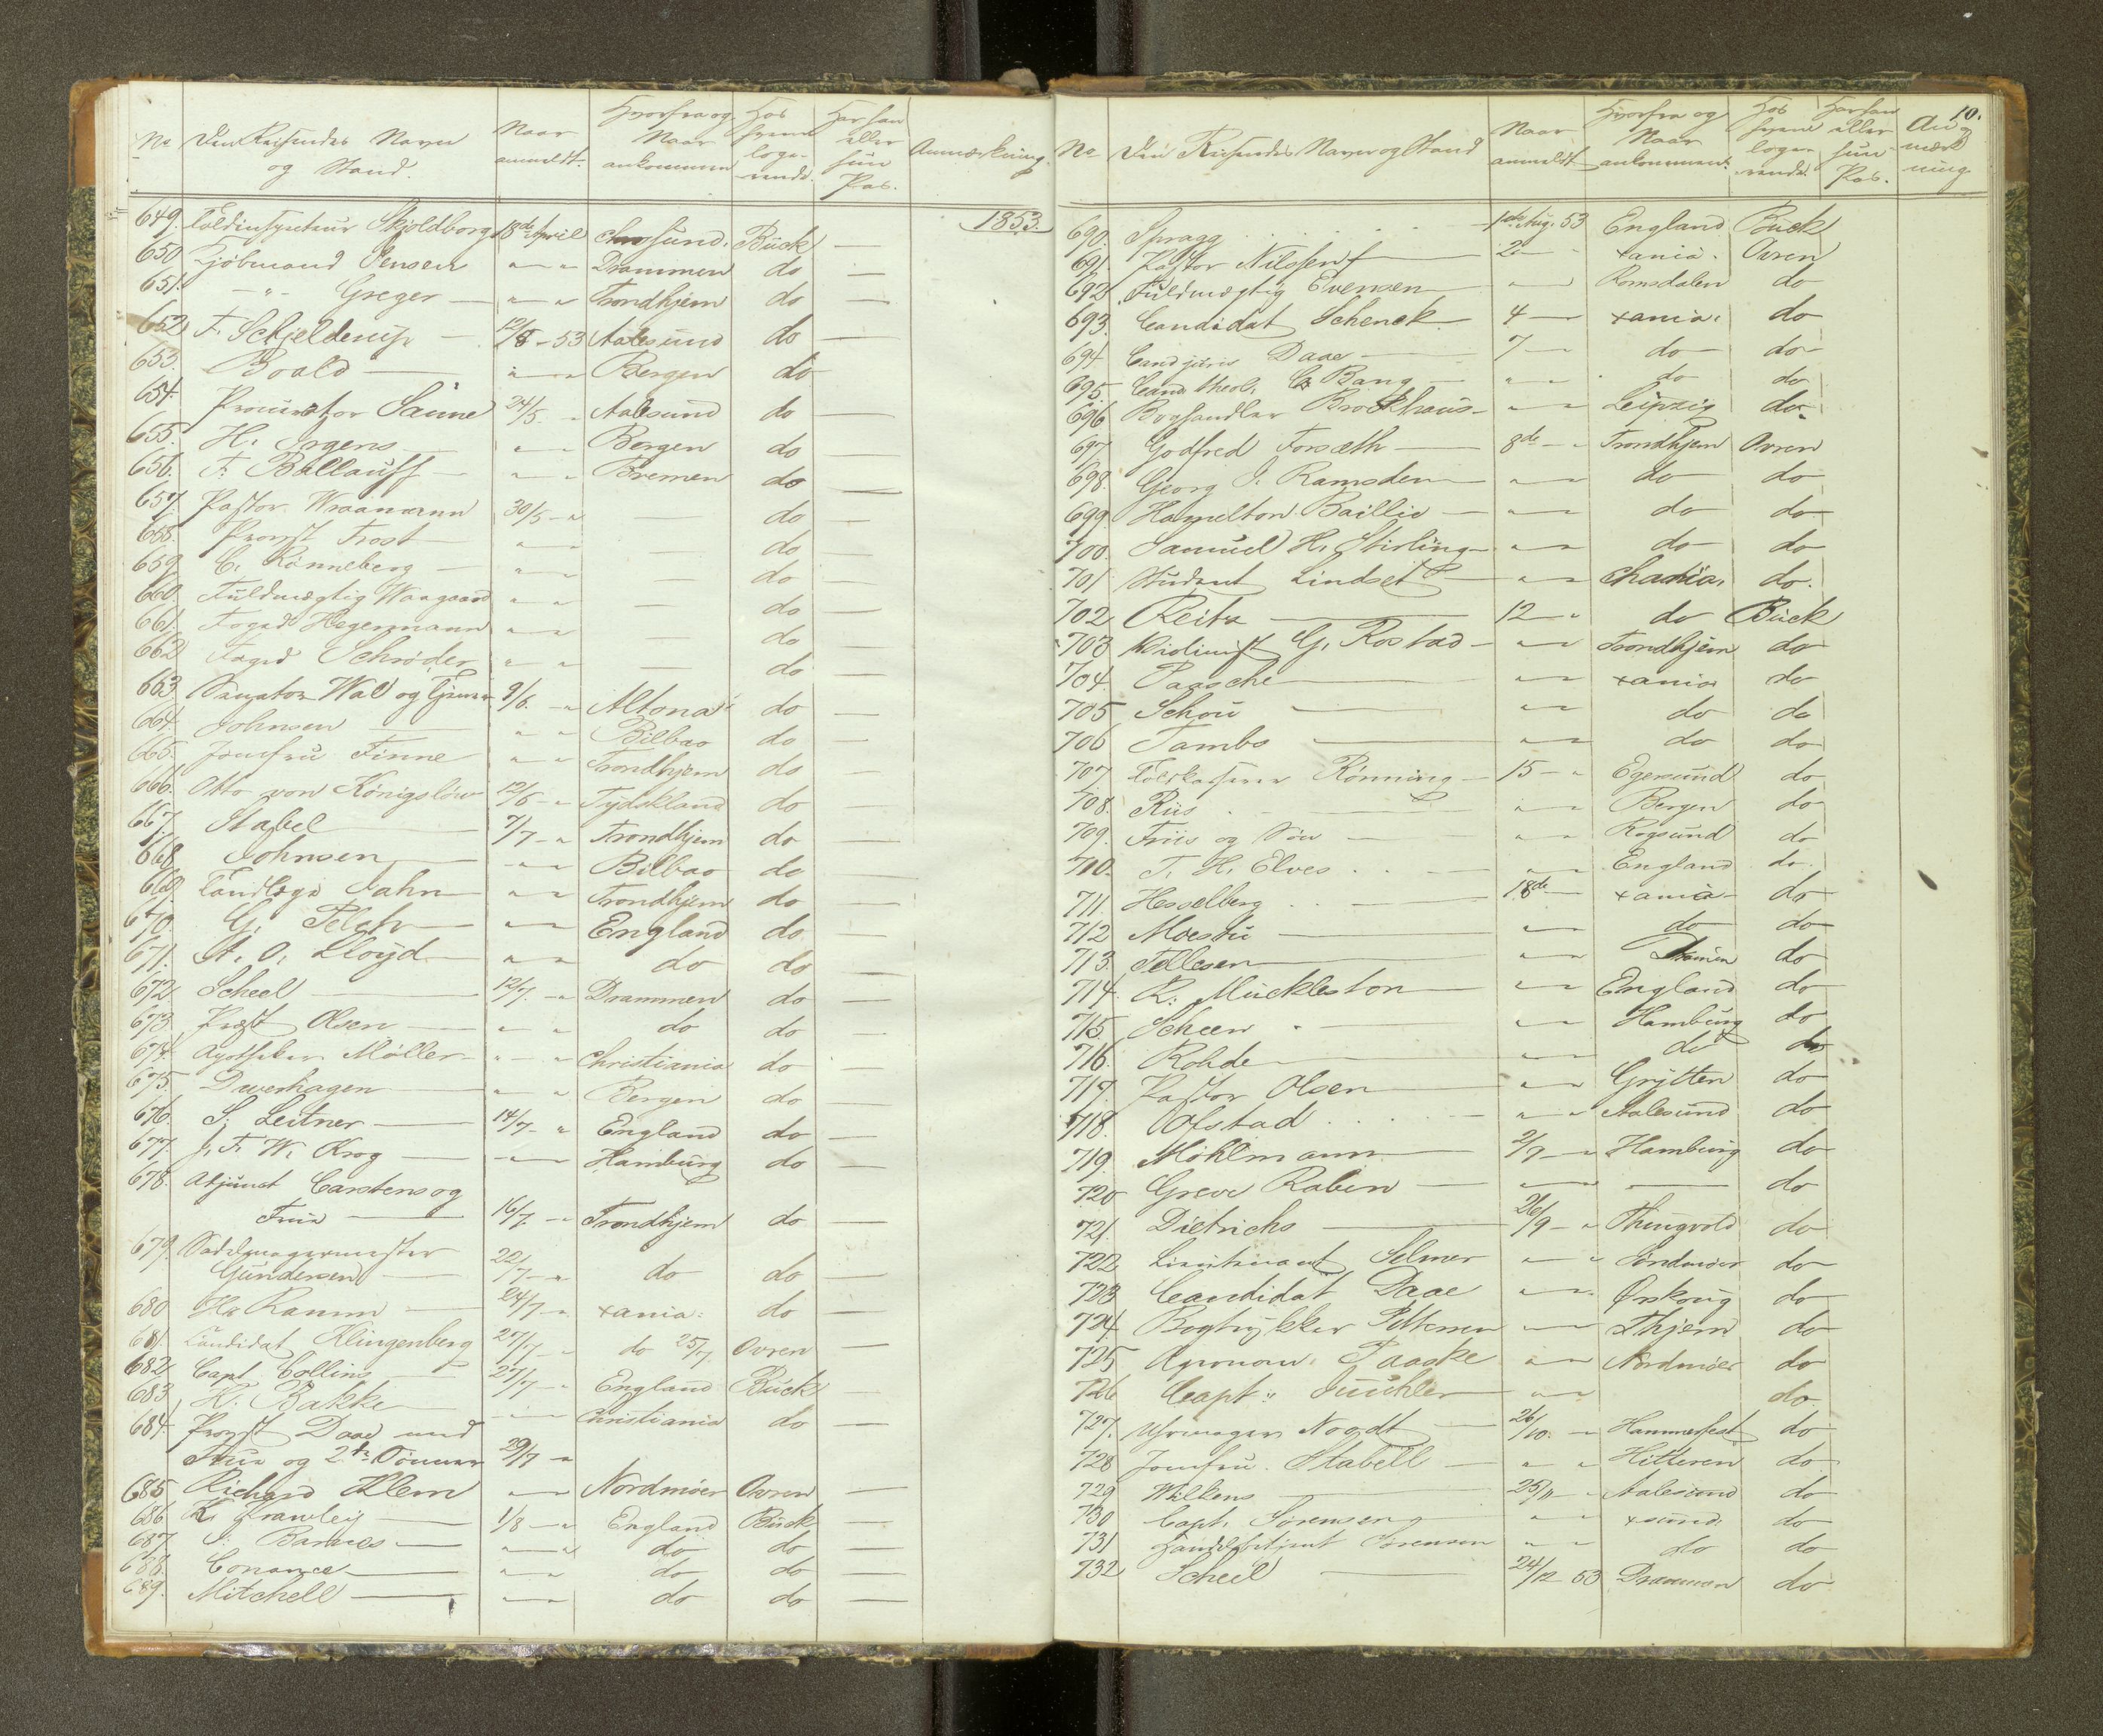 No Den Reisendes Navn og Stand. Naar anmeldt. Hvorfra og Naar ankommen Hos hvem logerende. Har han eller hun Pas. Anmærkning.
1853.
649. Toldinspecteur Skjoldborg 18de April Chrsund. Bück —
650 Kjøbmand Jensen " — " Drammen do —
651. — " — Greger — " — " Trondhjem do —
652 F. Schjelderup — 12/5 - 53 Aalesund do —
653. Boald — " — " Bergen do
654. Procurator Sanne 24/5. - " Aalesund do —
655. H. Irgens " — " Bergen do —
656. F. Ballauff — " — " Bremen do —
657. Pastor Wraamann 30/5 - " do —
658. Provst Frost — " — " do —
659 C. Rønneberg — " — " — do —
660. Fuldmægtig Waagaard " — " — do —
661. Foged Hegermann " — " — do —
662 Foged Schrøder " — " — do —
663. Senator Wal og 9/6 - " Altona do —
664. Johnsen — " — " Bilbao do —
665. Jomfru Finne " — " Trondhjem do —
666. Otto von Königslöw 12/6 - " Tydskland do —
667. Stabel — 7/7 - " Trondhjem do —
668 Johnsen — " — " Bilbao do —
669. Tandlæge Jahn — " — " Trondhjem do —
670. G. — " — " England do —
671. A. O. Lloyd — " — " do do —
672. Scheel — 12/7. - " Drammen do —
673. Præst Olsen — " — " do do —
674. Apotheker Møller — " — " Christiania do —
675. Dwerhagen — " — " Bergen do —
676. S. Leitner — 14/7 - " England do —
677. J. F. W. Krog — " — " Hamburg do —
678. Adjunct Carstens og
Frue — 16/7. - " Trondhjem do —
679. Sadelmagermester
Gundersen — 22/7 - " do do —
680 Hr Ramm — 24/7 - " xania. do —
681. Candidat Klingenberg 27/7 - " do 25/7. Ovren —
682 Capt Collins — 27/7 - " England Bück —
683. H. Bakke — " — " Christiania do —
684. Provst Daae med
Frue og 2de Sønner 29/7 - "
685 Richard Klem " — " Nordmøer Ovren —
686 K. Frawley — 1/8 - " England Bück —
687. J. Barnes — " — " do do —
688. Conance — " — " do do —
689. Mitchell — " — " do do —
10.
No Den Reisendes Navn og Stand Naar anmeldt Hvorfra og Naar ankommen. Hos hvem logerende. Har han eller hun Pas. Anmærkning
690. Spragg 1ste Aug. 53 England Bück
691. Pastor Nilssen — 2 — xania. Ovren
692 Fuldmægtig Evensen — " — Romsdalen do
693. Candidat Schenck — 4 — xania. do
694 Cand juris Daae — 7 — do do
695. Cand. theol. Bang — " — " do do
696 Boghandler Brockhaus — " — " Leipzig do
697. Godfred Forsæth — 8de - " Trondhjem Ovren
698. Georg J. Ramsden — " — do do
699 Hamelton Baillie — " — do do
700. Samuel H. Stirling — " — do do
701 Student Lindset — " — Chania. do.
702 Reitz — 12 - " do Bück
703 Violinist G. Rostad — " — Trondhjem do
704. Paasche — " — xania do
705 Schou — " — do do
706 Tambs — " — do do
707 Toldkasserer Rønning — 15 - " Egersund do
708. Riis — " — Bergen do
709. Friis og Søn — " — Rogsund do
710. T. H. Elves — " — England do.
711 Hesselberg — 18de — xania do
712 Moestu — " — do do
713. Tellesen — " — do
714. R. Muckleston — " — England do
715 Scheen — " — Hamburg do
716. Rohde — " — do do
717. Pastor Olsen — " — Grytten do
718. Ofstad — " — " Aalesund do
719. Möhlmann — 2/9 - " Hamburg do
720 Greve Raben — " — — do
721. Dietrichs — 26/9 - " Thingvold do
722 Lieutenant Selmer — " — " Søndmøer do
723 Candidat Daae — " — Ørskoug do
724. Bogtrykker Pettersen — " — Thjem do
725 Agronom. Paaske — " — Nordmøer do
726 Capt: — " — do.
727. Uhrmager Noodt — 26/10. - " Hammerfest do
728 Jomfru. Stabell — " — " Hitteren do
729 Wilkens — 25/11 - " Aalesund do
730 Capt. Sørensen — " — " xsund. do
731 Handelsbetjent Sørensen " — " do do
732 Scheel — 24/12 53 Drammen do